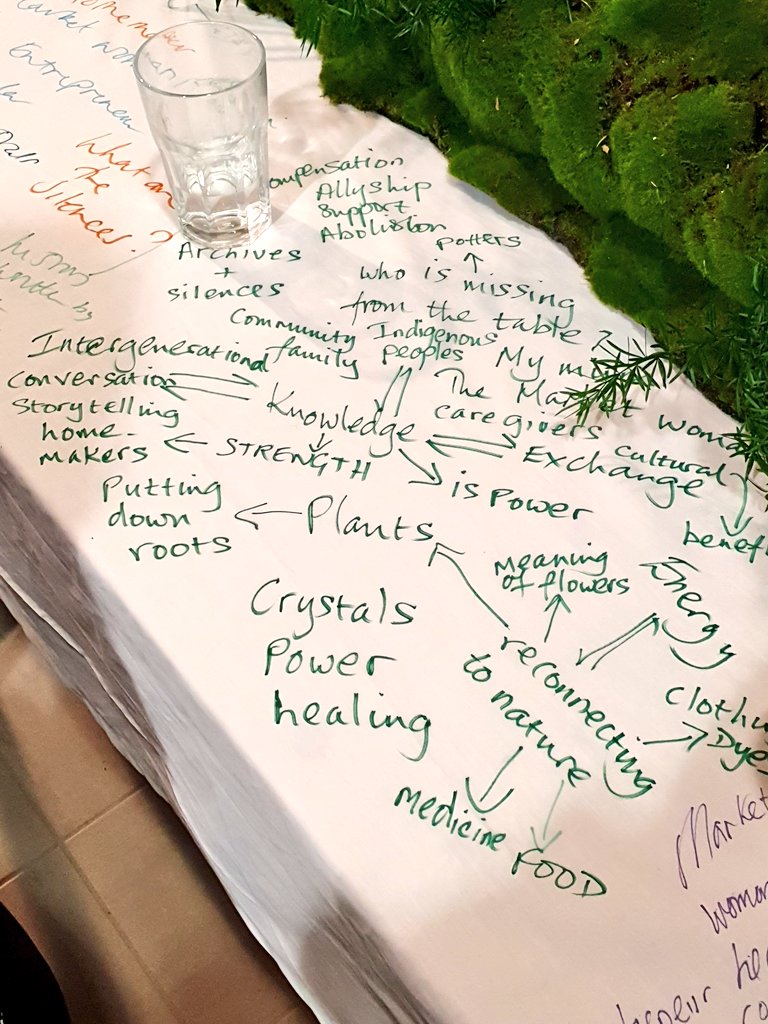 homemaker
market woman
Entrepreneur
What
The
Silences?
ompensation
Allyship
Support
Abolition
potters
Archives
+
silences
who is missing
from the table?
Community
family
Indigenous
peoples
My
The Market woman
care givers
Intergenerational
conversation
storytelling
home-
makers
Knowledge
STRENGTH
cultural
Exchange
is Power
benef
Putting
down
roots
Plants
Meaning
of flowers
Energy
Crystals
Power
healing
reconnecting
to nature
Clothi
Dye
medicine
FOOD
Market
woma